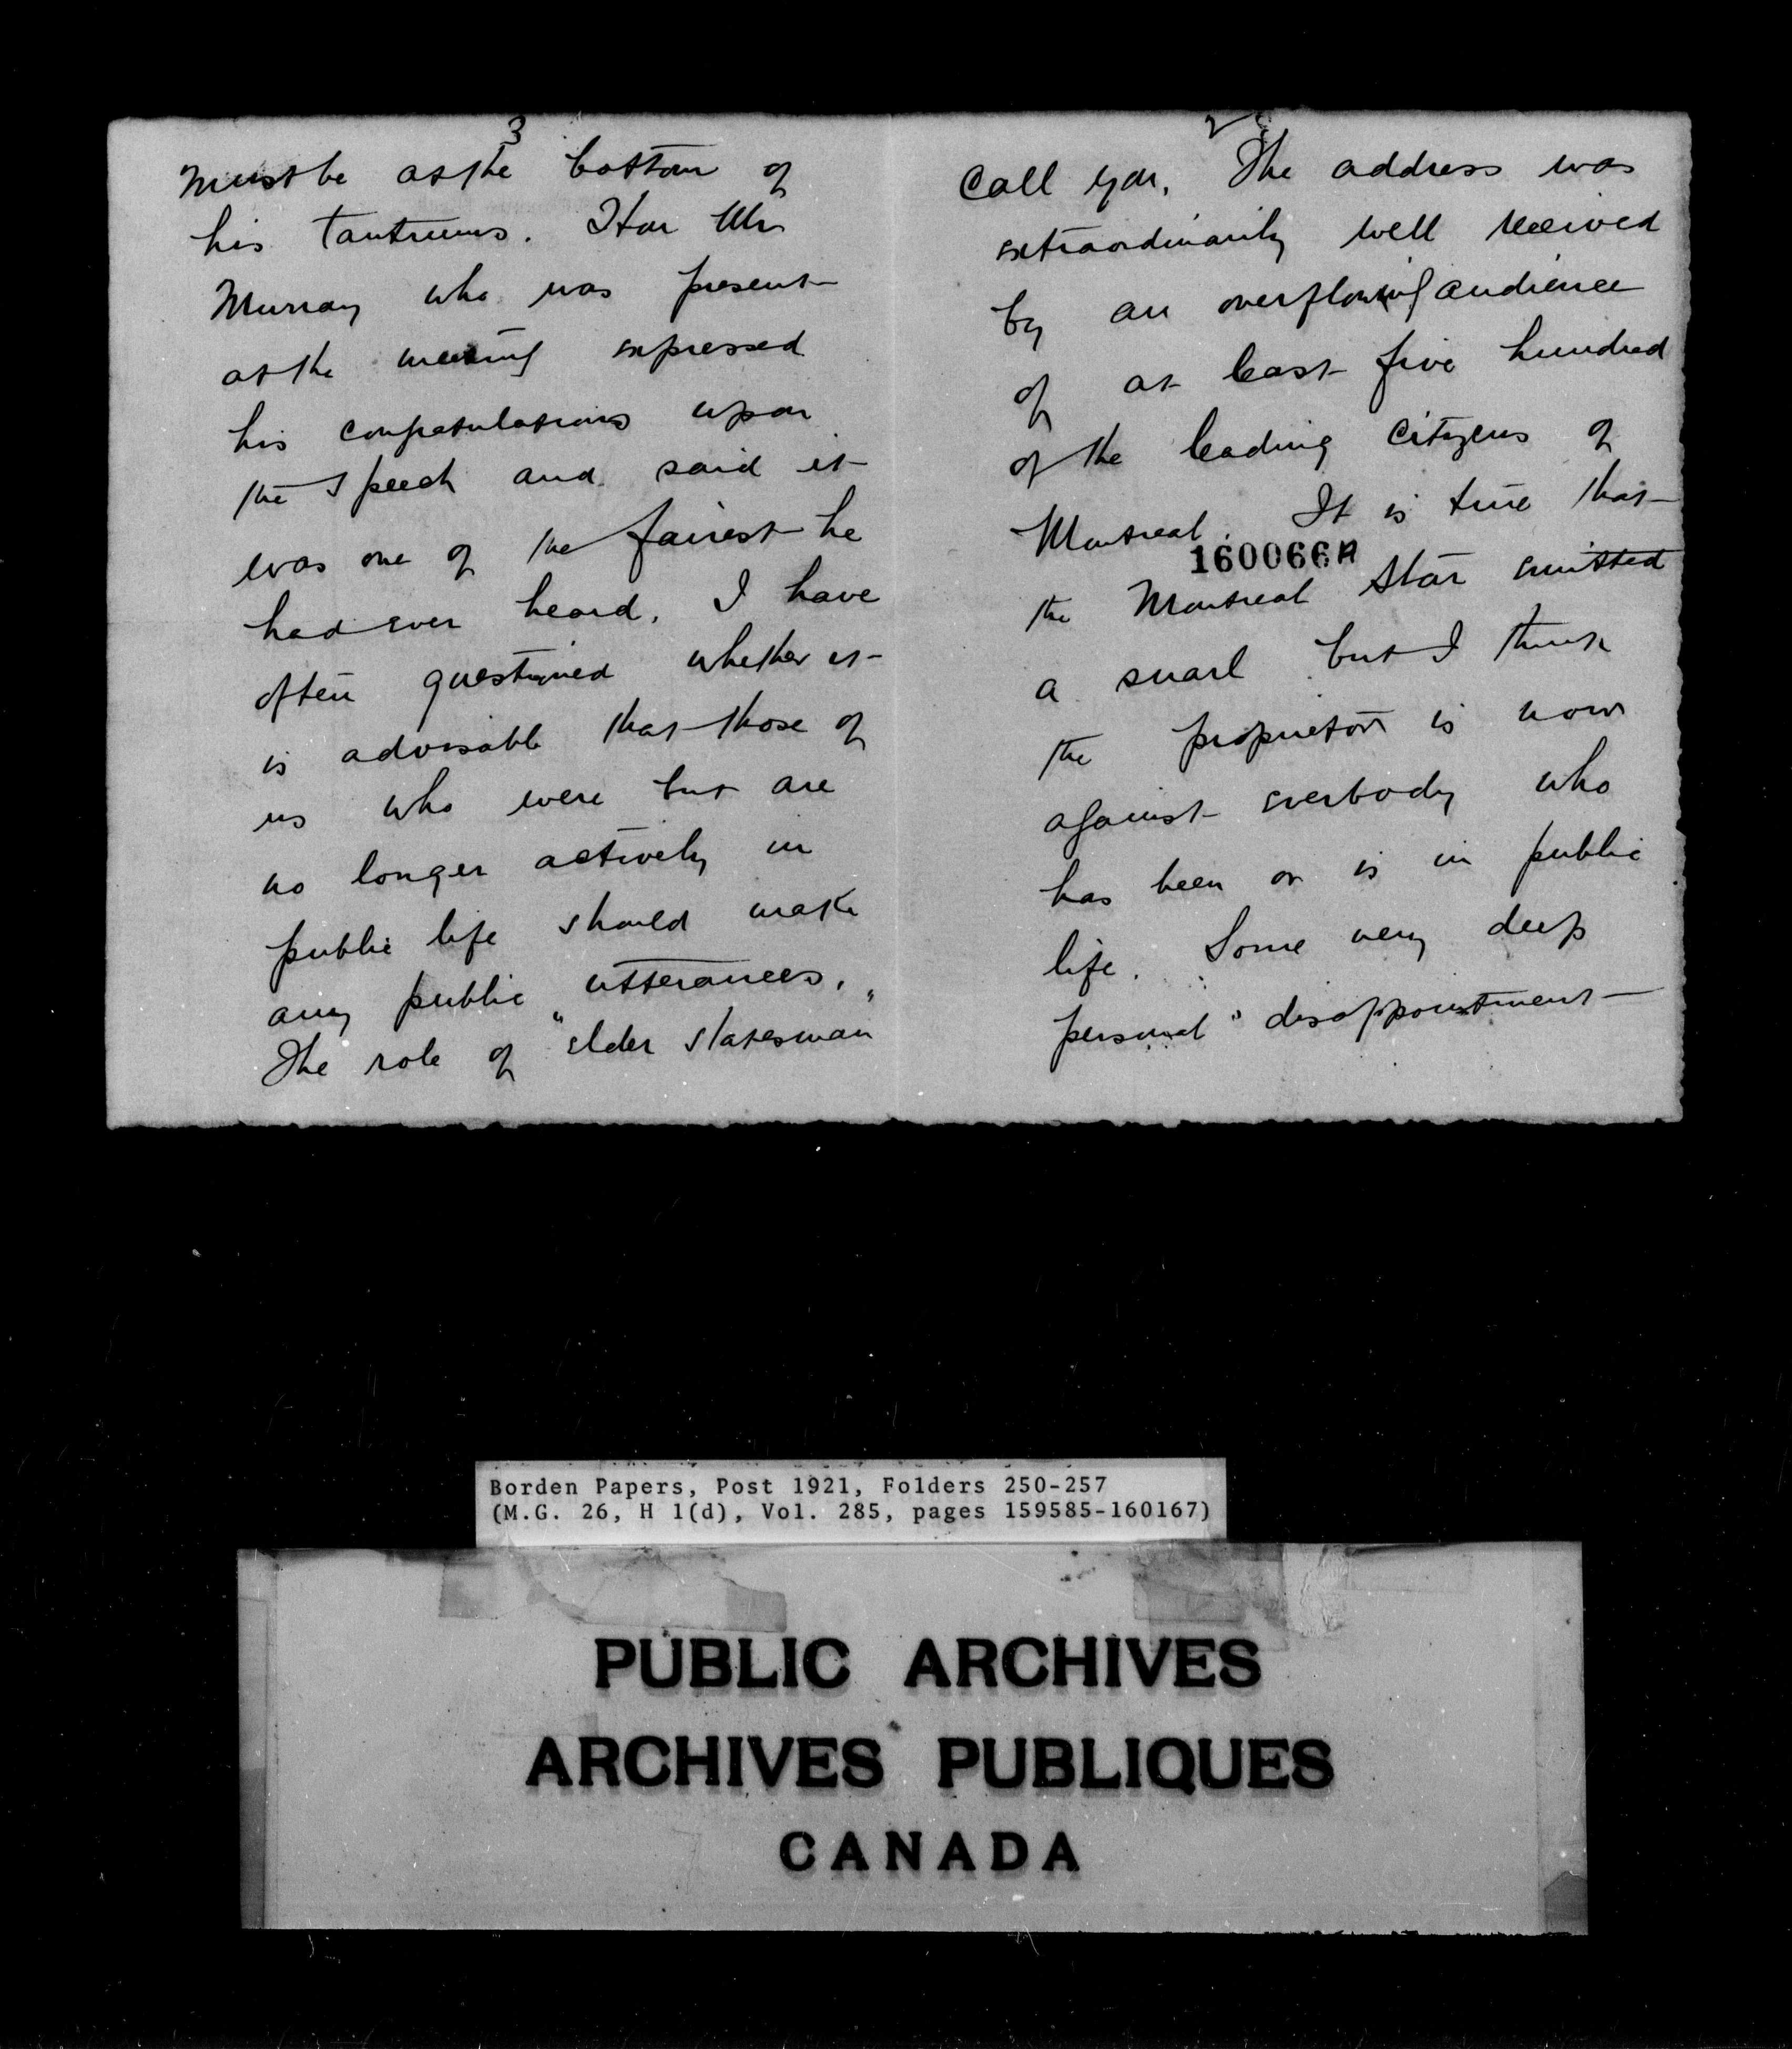 3
must be at the bottom of
his tantrums. Hon Mr
Murray who was present
at the meeting expressed
his congratulations upon
the speech and said it
was one of the fairest he
had ever heard. I have
often questioned whether it
is advisable that those of
us who were but are
no longer actively in
public life should make
any public utterances.
The role of "elder statesman"
2
call you. The address was
extraordinarily well received
by an overflowing audience
of at least five hundred
of the leading citizens of
Montreal. It is true that
160066A
the Montreal Star emitted
a snarl but I think
the proprietor is now
against everbody who
has been or is in public
life. Some very deep
personal disappointment
Borden Papers, Post 1921, Folders 250-257
(M.G. 26, H 1(d), Vol. 285, pages 159585-160167)
PUBLIC ARCHIVES
ARCHIVES PUBLIQUES
CANADA